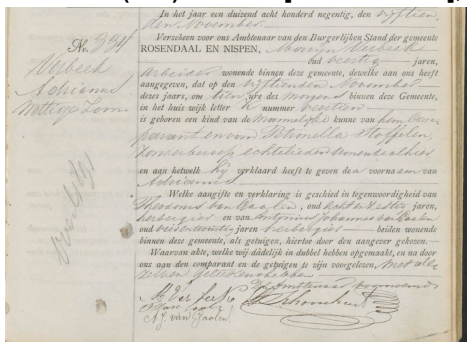 In het jaar een duizend acht honderd negentig, den vijftien
den November
Verscheen voor ons Ambtenaar van den Burgerlijken Stand der gemeente
ROSENDAAL EN NISPEN, Marijn Verbeek
oud veertig jaren,
arbeider wonende binnen deze gemeente, dewelke aan ons heeft
aangegeven, dat op den vijftienden November
dezes jaars, om tien ure des morgens binnen deze Gemeente,
in het huis wijk letter nummer veertien
is geboren een kind van de Mannelijke kunne van hem Comparant en van Petronella Stoffelen,
zonder beroep echtelieden wonende alhier
en aan hetwelk hij verklaard heeft te geven den voornaam van
Adrianus
Welke aangifte en verklaring is geschied in tegenwoordigheid van
van Gaalen, oud jaren,
herbergier en van Antonius Johannes van Gaalen
oud jaren herbergier beiden wonende
binnen deze gemeente, als getuigen, hiertoe door den aangever gekozen.
Waarvan akte, welke wij dadelijk in dubbel hebben opgemaakt, en na door
ons aan den comparant en de getuigen te zijn voorgelezen, met alle
geteekend hebben
A. J. van Gaalen
No.
Verbeek
Adrianus
Wettige Zoon